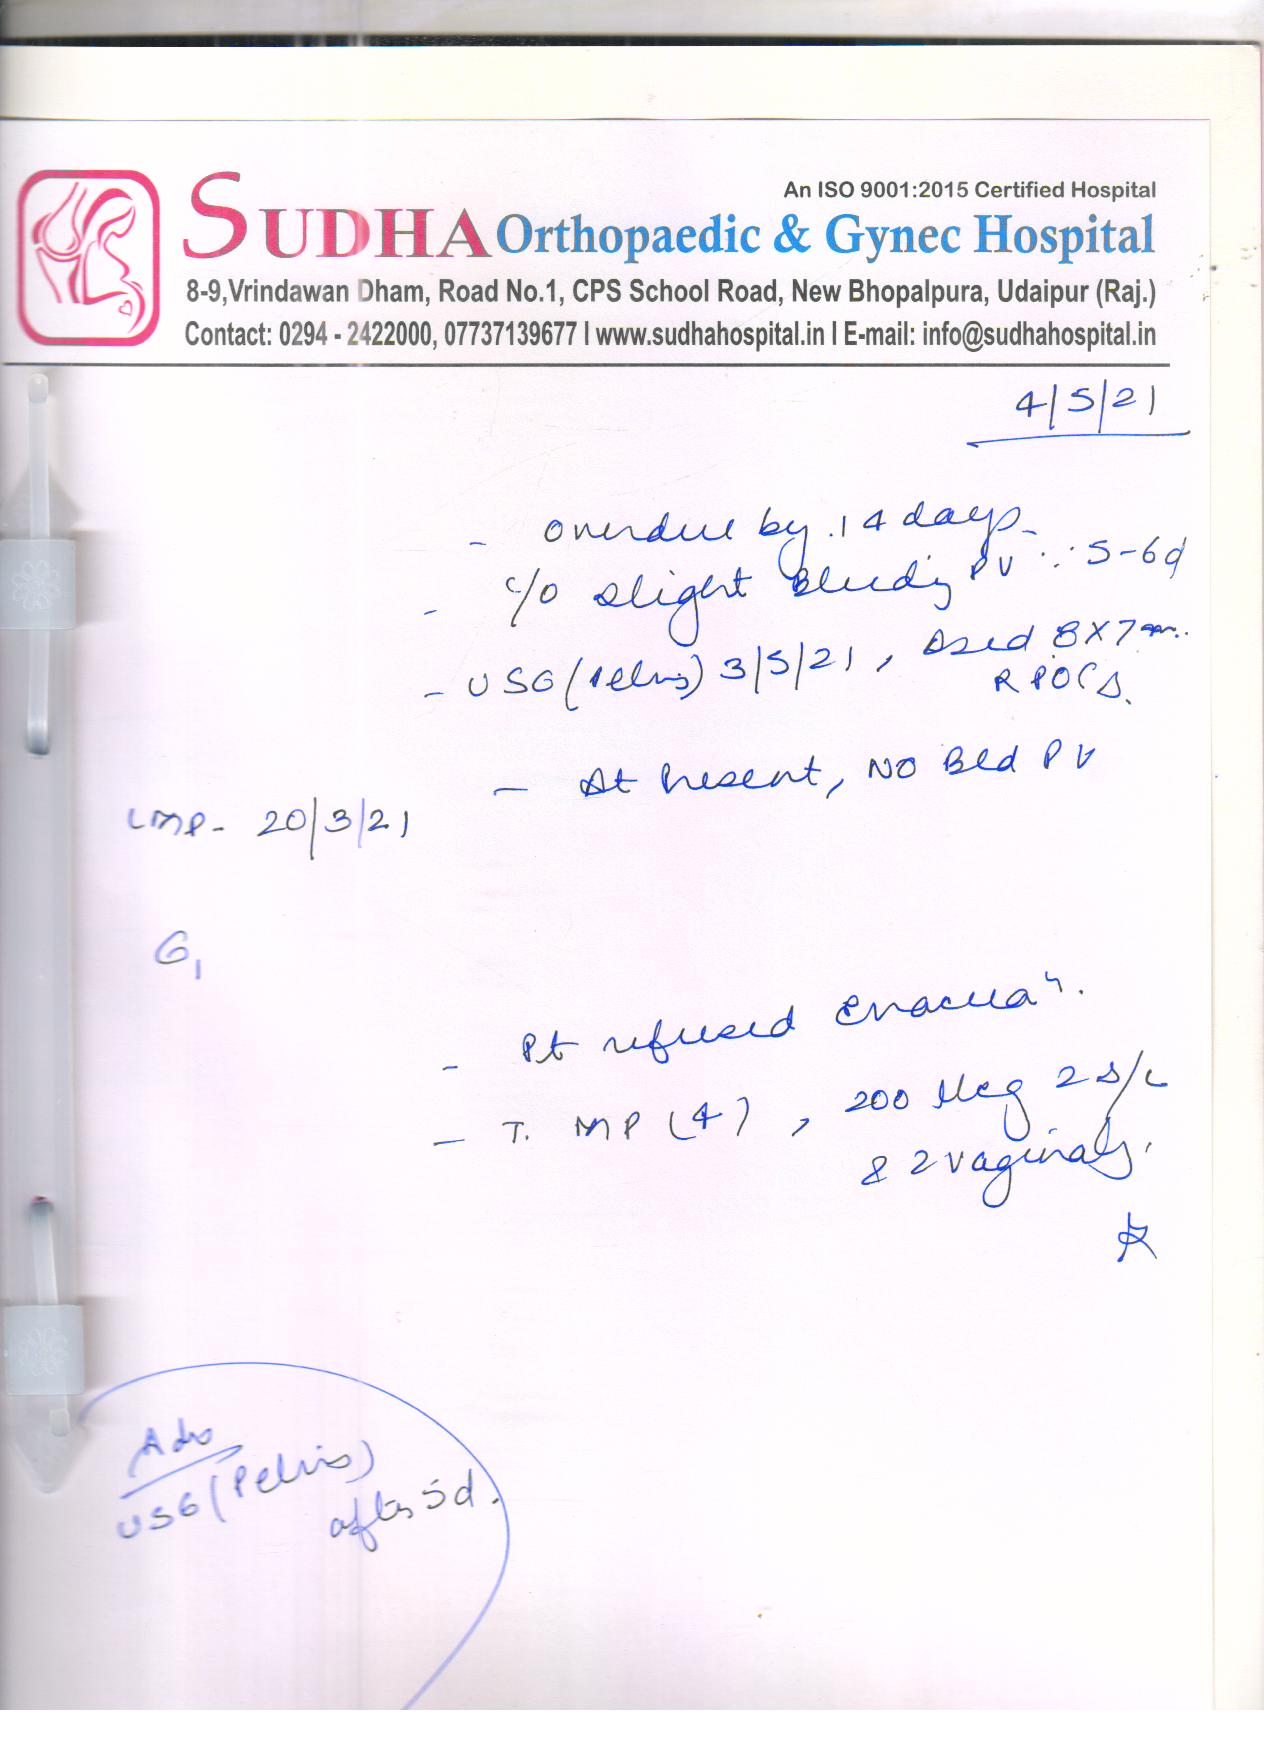 An ISO 9001:2015 Certified Hospital
SUDHA Orthopaedic & Gynec Hospital
8-9,Vrindawan Dham, Road No.1, CPS School Road, New Bhopalpura, Udaipur (Raj.)
Contact: 0294 - 2422000, 07737139677 I www.sudhahospital.in I E-mail: info@sudhahospital.in
4/5/21
- overdue by 14 days
- c/o slight Bleeding PV ∵ 5-6d
- USG (Pelvis) 3/5/21, 8X7
RPOCs.
- At present, NO Bld PV
LMP- 20/3/21
G1
- Pt refused Evacuaⁿ.
- T. MP (4), 200 Mcg 2 S/L
& 2 vaginally.
Adv
USG (Pelvis)
after 5d.